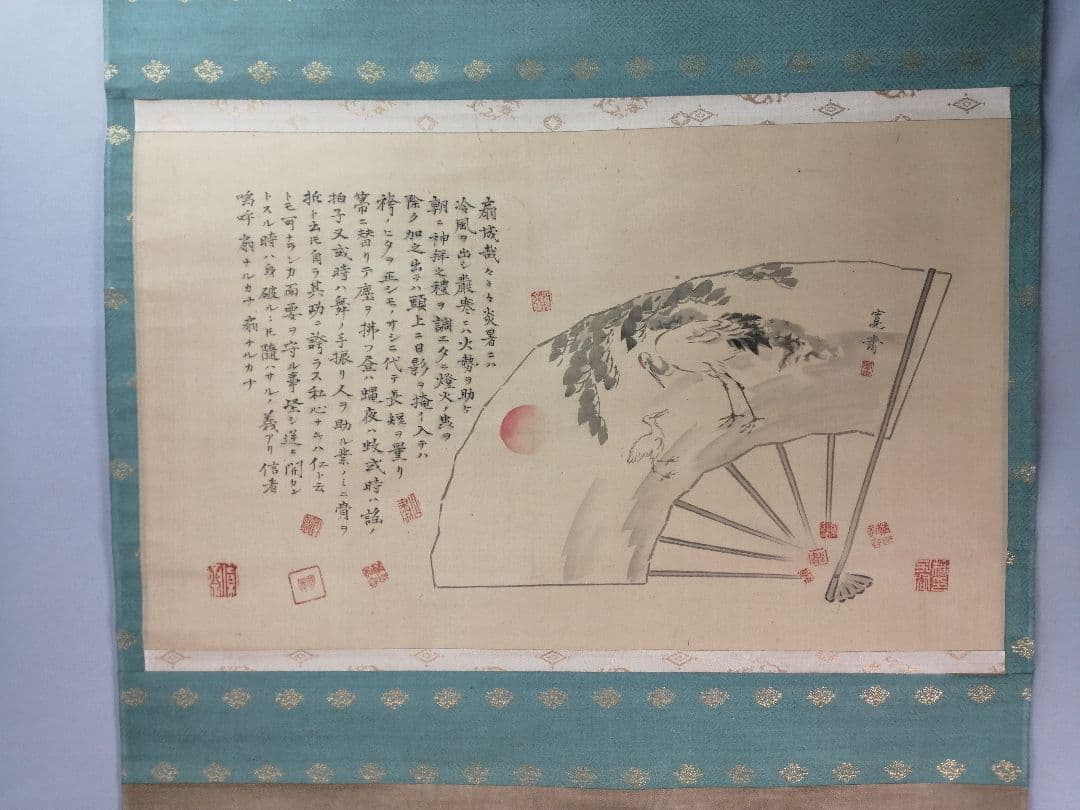 扇哉哉々々々炎暑ニハ
冷風ヲ出シ嚴寒ニハ火勢ヲ助ケ
朝ニ神拜之禮ヲ調エタニ燈火ノ虫ヲ
除ク加之出テハ頭上ニ日影ヲ掩イ入テハ
袴ノヒタヲ正シモノサシニ代テ長短ヲ量リ
箒ニ替リテ塵ヲ拂フ昼ハ蝿夜ハ蚊或時ハ謡ノ
拍子又或時ハ舞ノ手振リ人ヲ助ル業ノミニ膏ヲ
折ト云モ角ラ其功ニ誇ラス私心ナキハ仁ト云
トモ可ナランカ而要ヲ守ル事堅シ逆ニ開カン
トスル時ハ身破ルモ隨ハサルノ義アリ信者
嗚呼扇ナルカナ扇ナルカナ
寛齋